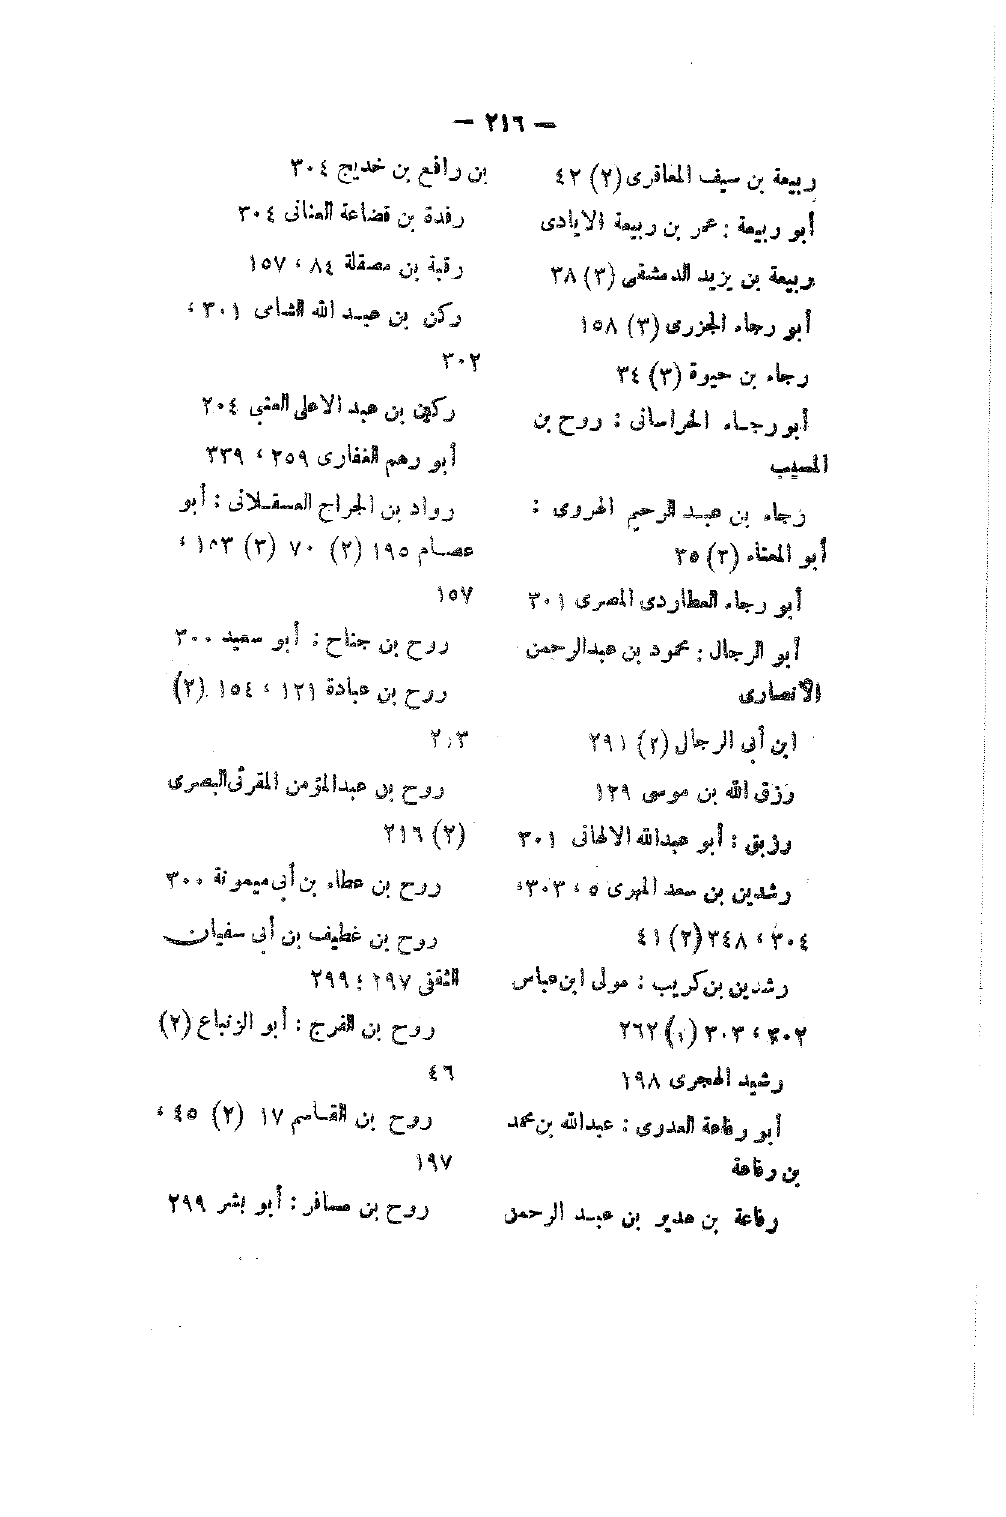 — ٢١٦ —
ربيعة بن سيف المعافرى (٢) ٤٢
أبو ربيعة : عمر بن ربيعة الايادى
ربيعة بن يزيد الدمشقى (٣) ٣٨
أبو رجاء الجزرى (٣) ١٥٨
رجاء بن حيوة (٣) ٣٤
أبو رجاء الخراسانى : روح بن
المسيب
رجاء بن عبد الرحيم الهروى :
أبو المعتاء (٢) ٣٥
أبو رجاء العطاردى المصرى ٣٠١
أبو الرجال : محمود بن عبدالرحمن
الأنصارى
ابن أبى الرجال (٢) ٢٩١
رزق الله بن موسى ١٢٩
رزيق : أبو عبدالله الالهانى ٣٠١
رشدين بن سعد المهرى ٥ ، ٣٠٣،
٣٠٤ ، ٣٤٨ (٢) ٤١
رشدين بن كريب : مولى ابن عباس
٣٠٢ ، ٣٠٣ (١) ٢٦٢
رشيد الهجرى ١٩٨
أبو رفاعة العدوى : عبدالله بن محمد
بن رفاعة
رفاعة بن هدير بن عبد الرحمن
بن رافع بن خديج ٣٠٤
رفدة بن قضاعة الغسانى ٣٠٤
رقبة بن مصقلة ٨٤ ، ١٥٧
ركن بن عبد الله الشامى ٣٠١ ،
٣٠٢
ركين بن عبد الاعلى الضبى ٢٠٤
أبو رهم الغفارى ٢٥٩ ، ٣٣٩
رواد بن الجراح العسقلانى : أبو
عصام ١٩٥ (٢) ٧٠ (٣) ١٥٣ ،
١٥٧
روح بن جناح : أبو سعيد ٣٠٠
روح بن عبادة ١٢١ ، ١٥٤ (٢)
٢٠٣
روح بن عبدالمؤمن المقرئ البصرى
(٢) ٢١٦
روح بن عطاء بن أبى ميمونة ٣٠٠
روح بن غطيف بن أبى سفيان
الثقفى ٢٩٧ ؛ ٢٩٩
روح بن الفرج : أبو الزنباع (٢)
٤٦
روح بن القاسم ١٧ (٢) ٤٥ ،
١٩٧
روح بن مسافر : أبو بشر ٢٩٩